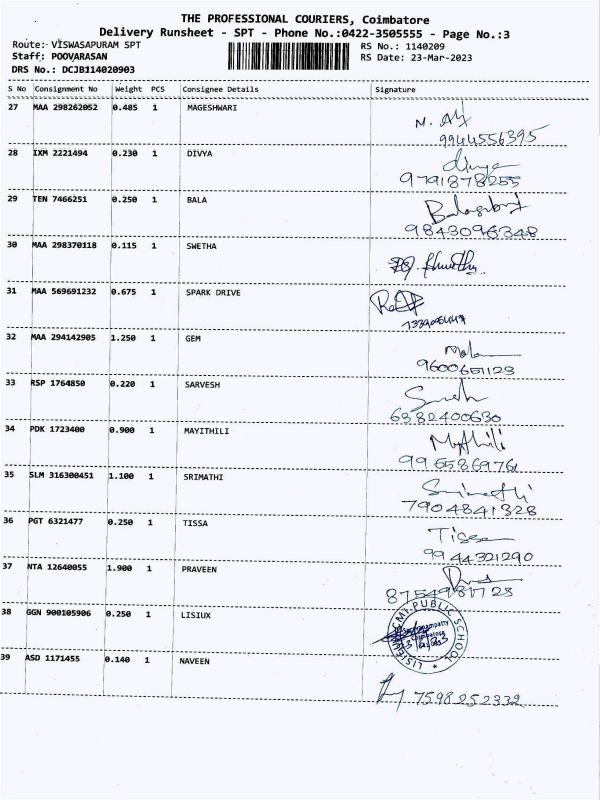 THE PROFESSIONAL COURIERS, Coimbatore
Delivery Runsheet - SPT - Phone No.:0422-3505555 - Page No.:3
Route:- VISWASAPURAM SPT
RS No.: 1140209
Staff: POOVARASAN
RS Date: 23-Mar-2023
DRS No.: DCJB114020903
S No Consignment No Weight PCS Consignee Details Signature
27 MAA 298262052 0.485 1 MAGESHWARI
9944556395
28 IXM 2221494 0.230 1 DIVYA
divya
9791878255
29 TEN 7466251 0.250 1 BALA
9843096348
30 MAA 298370118 0.115 1 SWETHA
31 MAA 569691232 0.675 1 SPARK DRIVE
32 MAA 294142905 1.250 1 GEM
9600651123
33 RSP 1764850 0.220 1 SARVESH
6382400630
34 PDK 1723400 0.900 1 MAYITHILI
Mythili
9965869761
35 SLM 316300451 1.100 1 SRIMATHI
Srimathi
7904841328
36 PGT 6321477 0.250 1 TISSA
Tissa
9944321290
37 NTA 12640055 1.900 1 PRAVEEN
8754981728
38 GGN 900105906 0.250 1 LISIUX
CMI PUBLIC SCHOOL
39 ASD 1171455 0.140 1 NAVEEN
7598252332